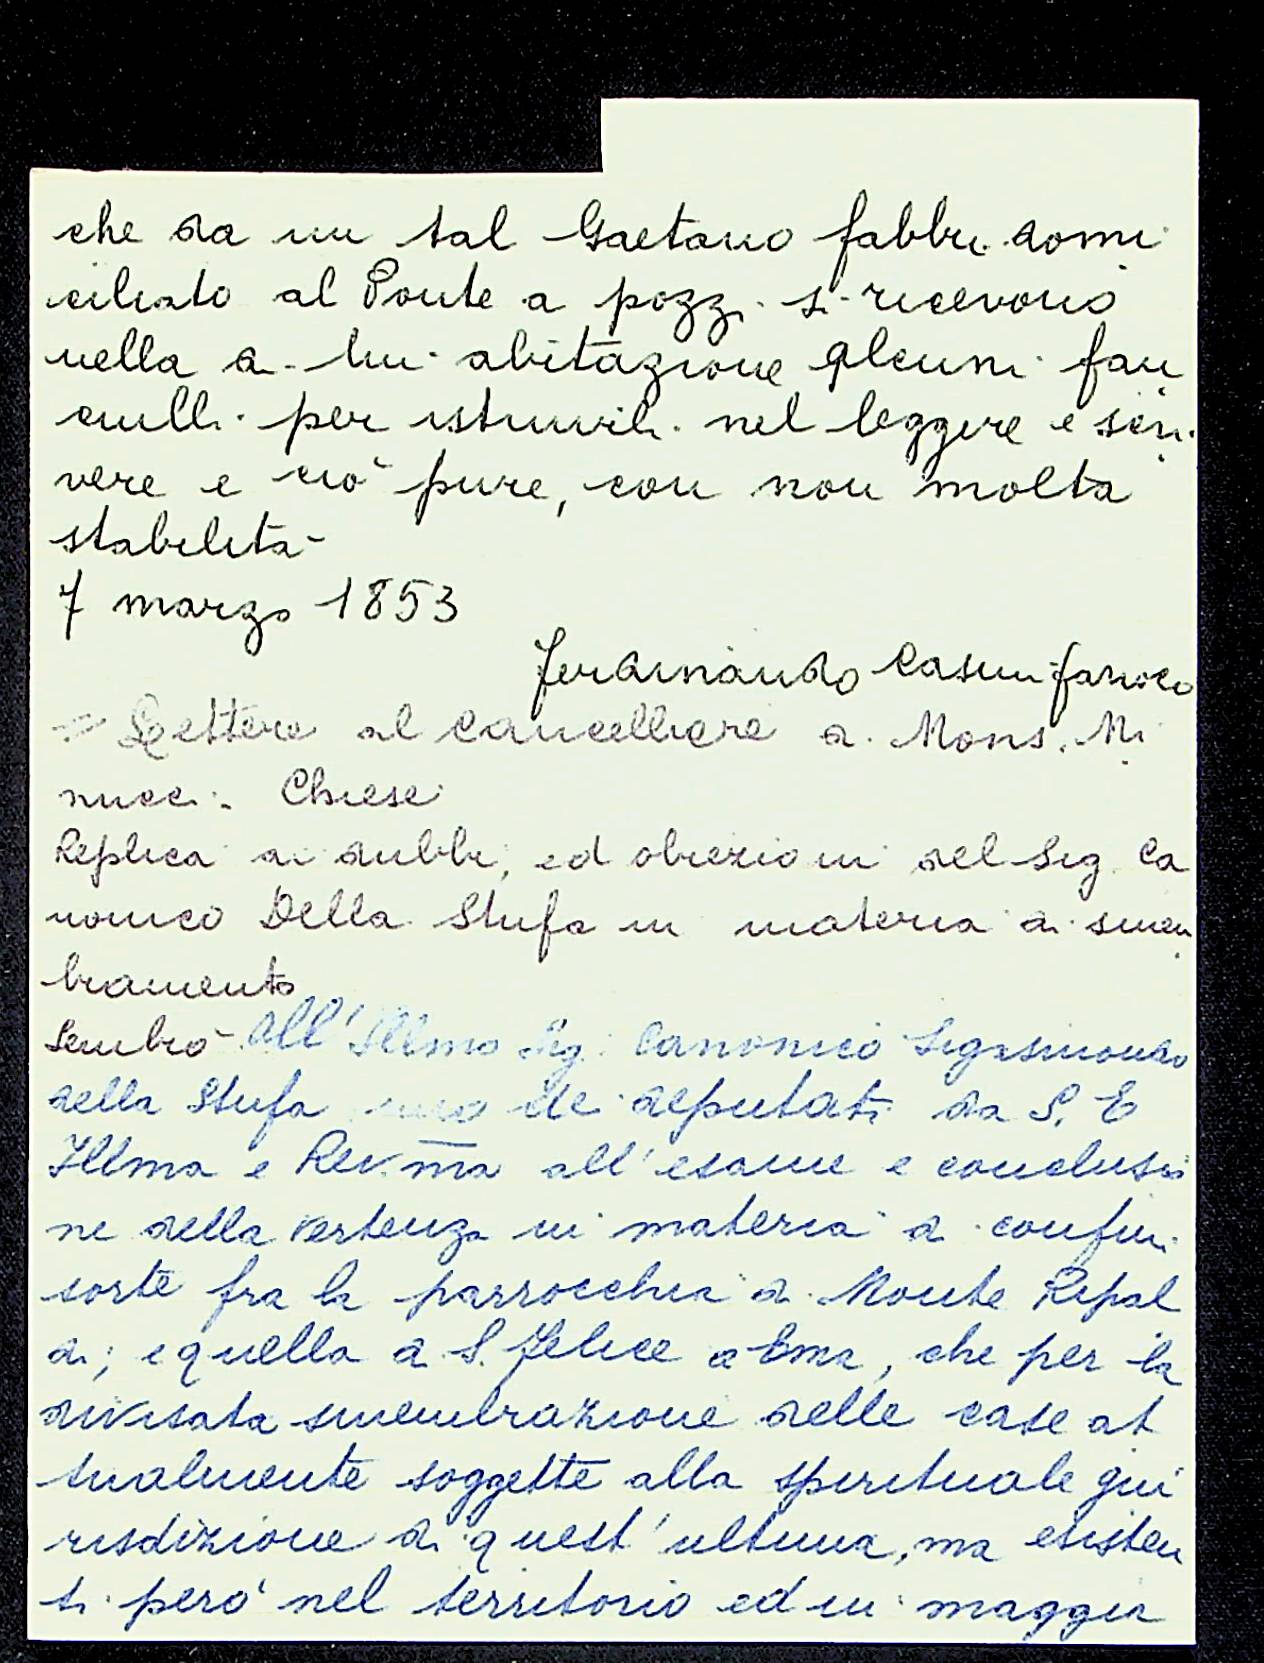 che da un tal Gaetano fabbri domi
ciliato al Ponte a pozzi si ricevono
nella di lui abitazione alcuni fan
ciulli per istruirli nel leggere e scri
vere e ciò pure, con non molta
stabilità
7 marzo 1853
Ferdinando Casini parroco
= Lettere al Cancelliere di Mons. Mi
nucci. Chiese
Replica ai dubbi, ed obiezioni del Sig. Ca
nonico Della Stufa in materia di smem
bramento
Sembrò all'Illmo Sig. Canonico Sigismondo
della Stufa uno de deputati da S. E
Illma e Rev.ma all'esame e conclusio
ne della vertenza in materia di confini
sorte fra la parrocchia di Monte Ripal
di; e quella di S. Felice a Ema, che per la
divisata smembrazione delle case at
tualmente soggette alla spirituale giu
risdizione di quest'ultima, ma esisten
ti però nel territorio ed in maggior